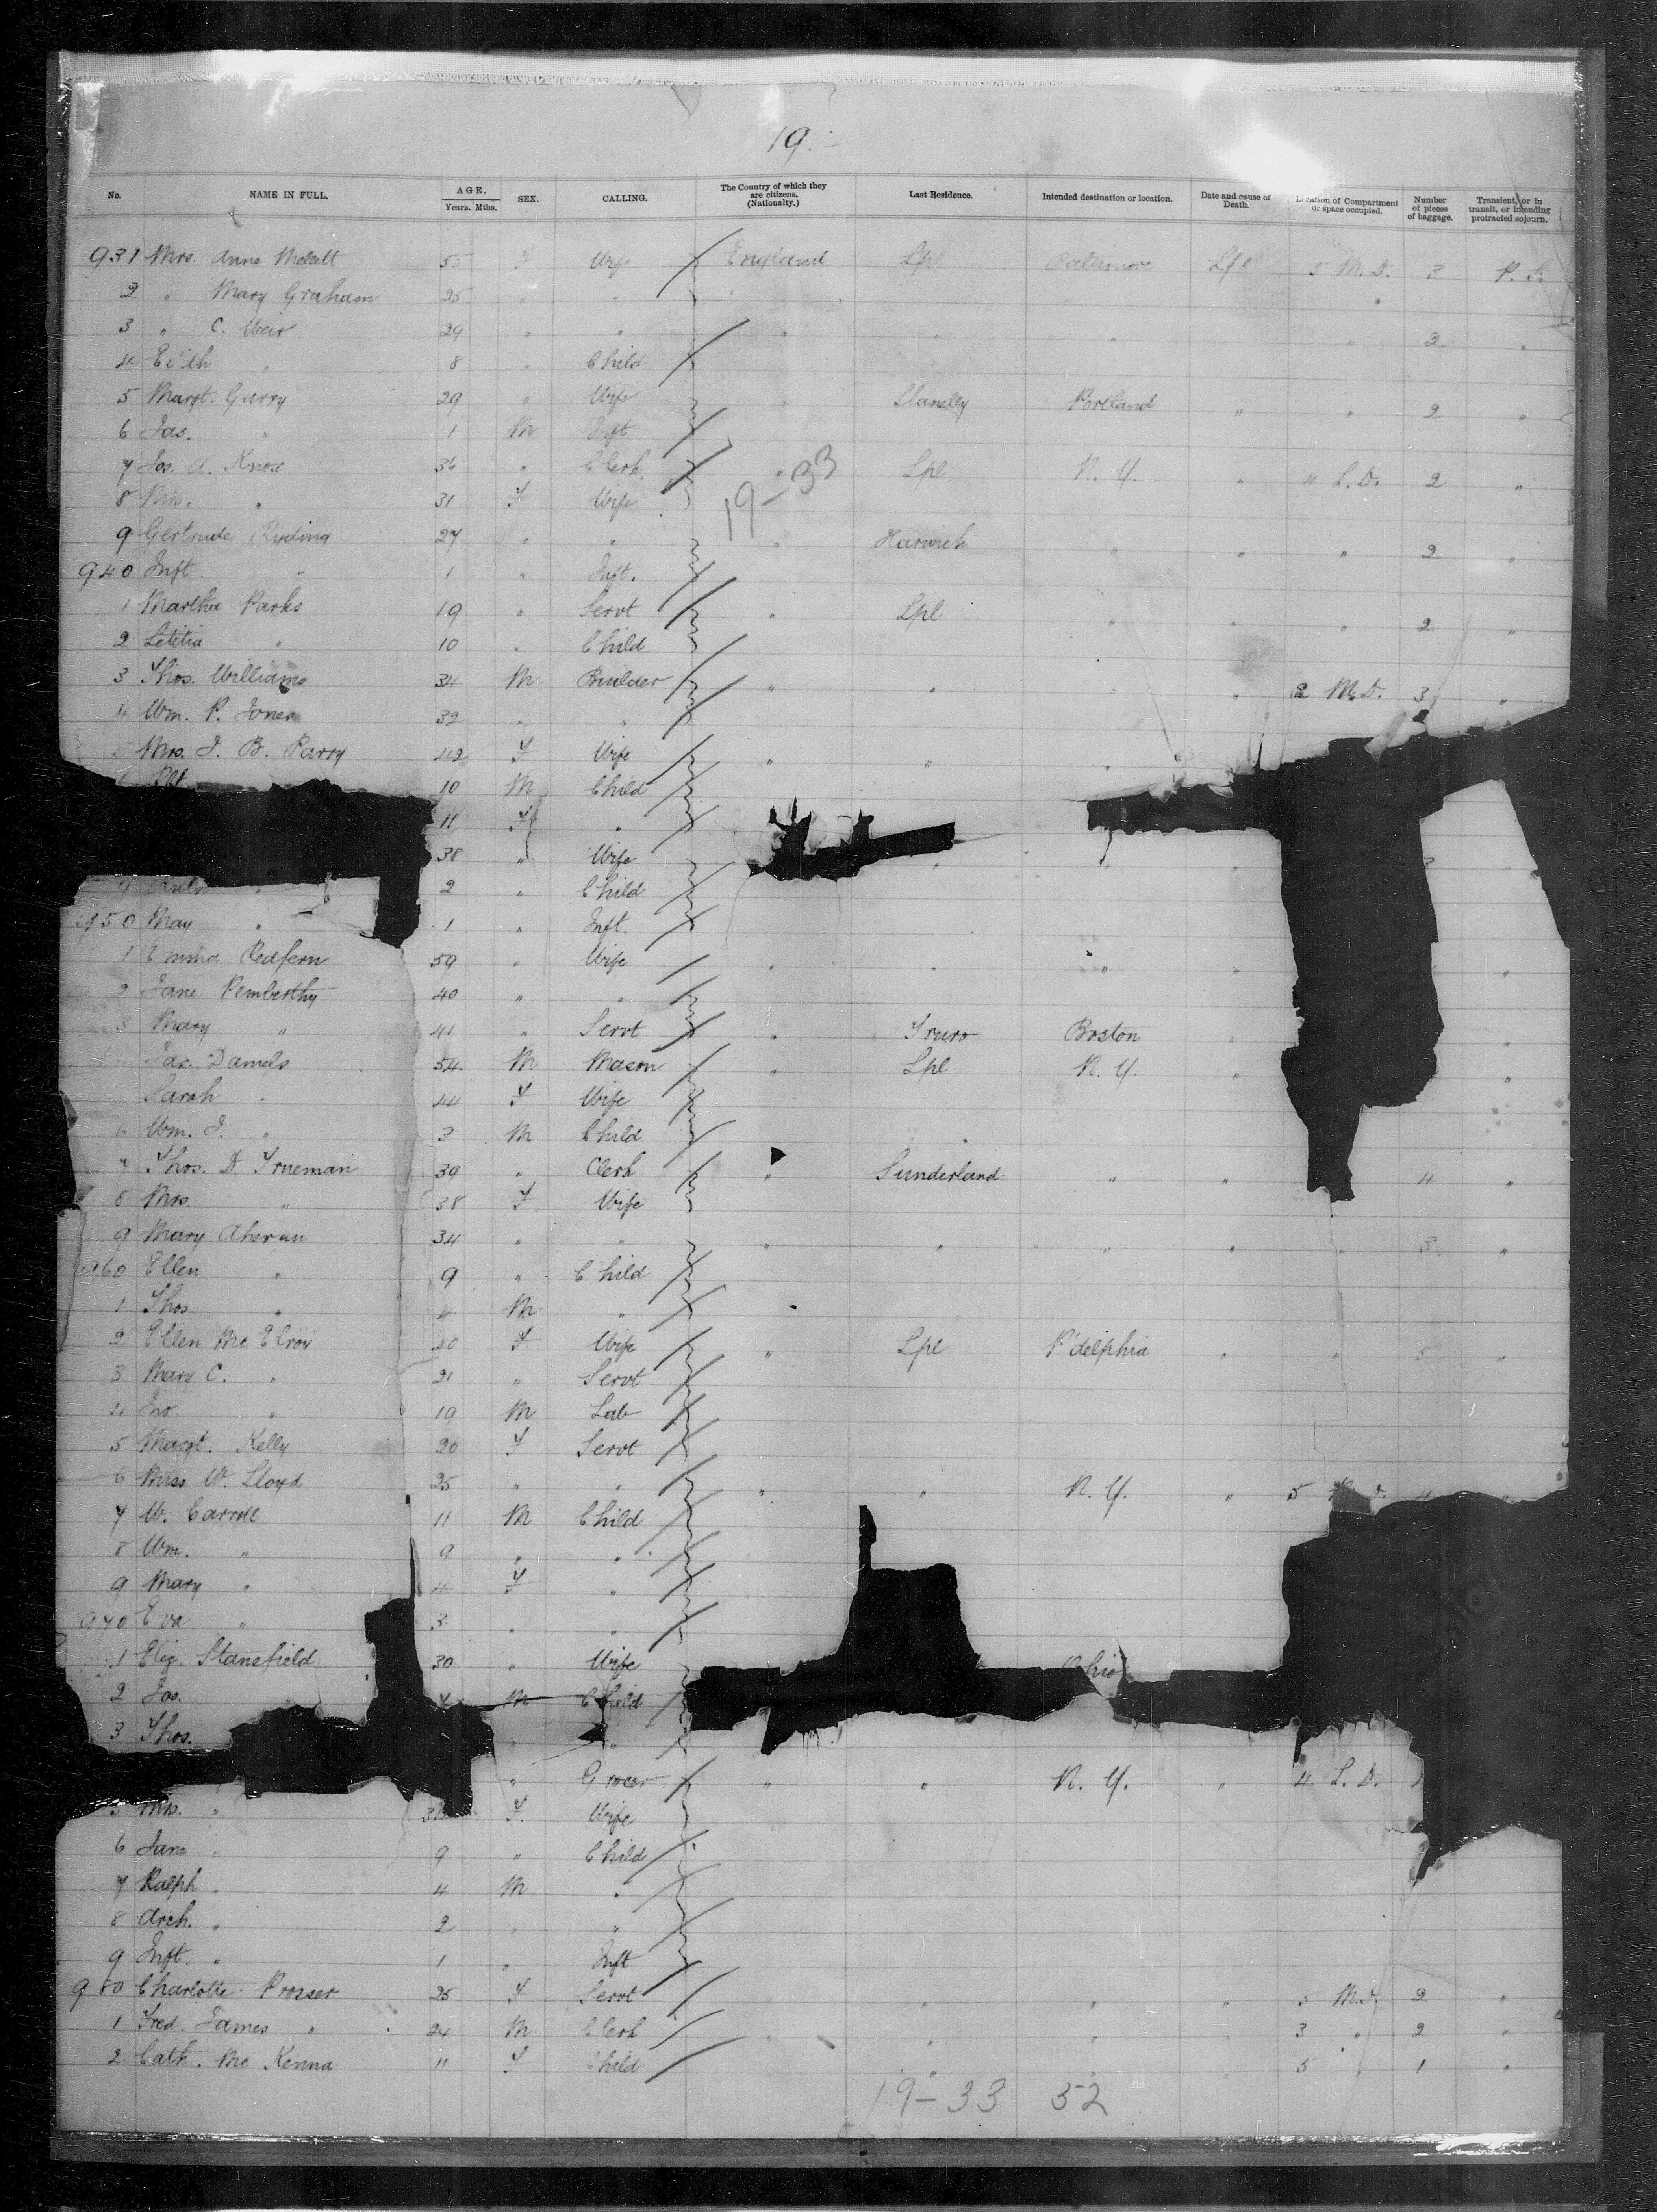 19.
No. NAME IN FULL. AGE. Years. Mths. SEX. CALLING. The Country of which they are citizens. (Nationalty.) Last Residence. Intended destination or location. Date and cause of Death. Location of Compartment or space occupied. Number of pieces of baggage. Transient, or in transit, or intending protracted sojourn.
931 Mrs. Anne 55 F Wife England Lpl Baltimore Lpl 5 M. D. 3 P. S.
2 " Mary Graham 25 " "
3 " C. Weir 29 " " " " " " 2 "
4 Edith " 8 " Child
5 Margt. Garry 29 " Wife Llanelly Portland " " 2 "
6 Jas. " 1 M Inft
7 Jos. A. Knox 36 " Clerk " Lpl N. Y. " 4 L. D. 2 "
8 Mrs. " 31 F Wife
19-33
9 Gertrude Ryding 27 " " " Harwich " " " 2 "
940 Inft " 1 " Inft.
1 Martha Parks 19 " Servt " Lpl " " " 2 "
2 Letitia " 10 " Child
3 Thos. Williams 34 M Builder " " " " 2 M. D. 3 "
4 Wm. P. Jones 32 " "
Mrs. J. B. Parry 42 F Wife " " "
10 M Child
11 F "
38 " Wife " " "
2 " Child
950 May " 1 " Inft.
1 Emma Redfern 59 " Wife " " " " "
2 Jane Pemberthy 40 " "
3 Mary " 41 " Servt " Truro Boston "
Jas. Daniels 54 M Mason " Lpl N. Y. " "
Sarah " 44 F Wife
6 Wm. J. " 3 M Child
7 Thos. D Trueman 39 " Clerk " Sunderland " " 4 "
8 Mrs. " 38 F Wife
9 Mary Ahern 34 " " " " " " " 3 "
960 Ellen " 9 " Child
1 Thos. " 4 M "
2 Ellen Mc Elroy 40 F Wife " Lpl P'delphia " " 5 "
3 Mary C. " 21 " Servt
4 Jno. " 19 M Lab
5 Margt. Kelly 20 F Servt
6 Miss W. Lloyd 25 " " " " N. Y. " 5 D. 4
7 W. Carroll 11 M Child
8 Wm. " 9 " "
9 Mary " 4 F "
970 Eva " 3 " "
1 Eliz. Stansfield 30 " Wife Ohio
2 Jos. M Child
3 Thos. "
" Grocer " " N. Y. " 4 L. D.
Mrs. " F. Wife
6 Jane " 9 " Child
7 Ralph " 4 M "
8 Arch. " 2 " "
9 Inft. " 1 " Inft
980 Charlotte Prosser 25 F Servt " " " 5 M. D. 2 "
1 Fred. James " 24 M Clerk " " " 3 " 2 "
2 Cath. Mc Kenna 11 F Child " 5 " 1 "
19-33 52